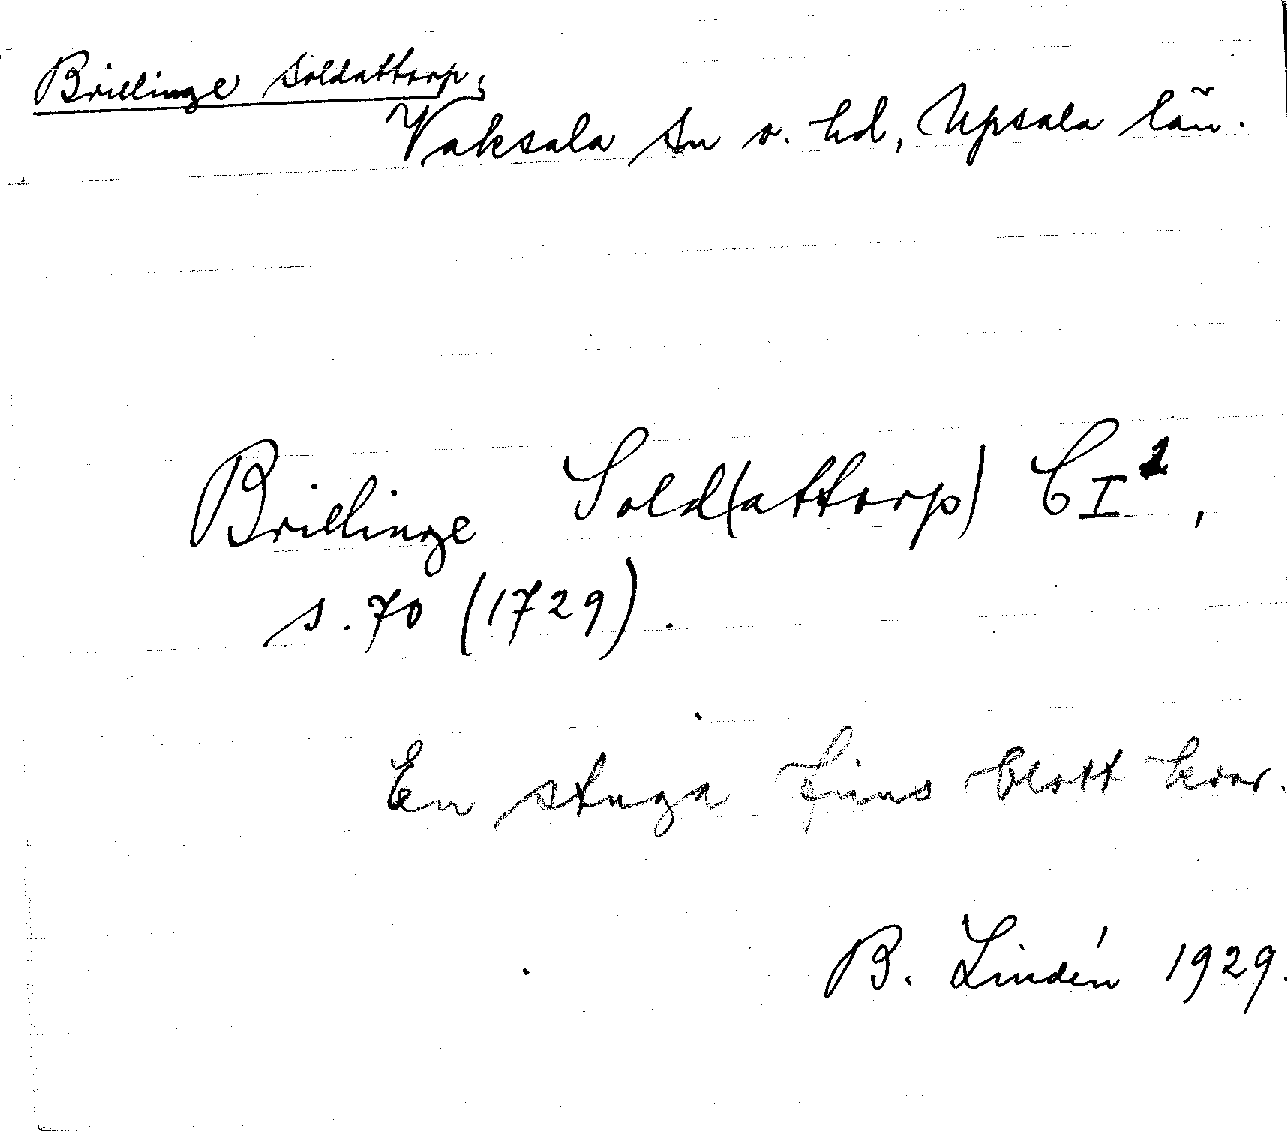 Brillinge Soldattorp,
Vaksala sn o. hd, Upsala län.
Brillinge Sold(attorp) C I²,
s. 70 (1729).
En stuga finns blott kvar.
B. Lindén 1929.